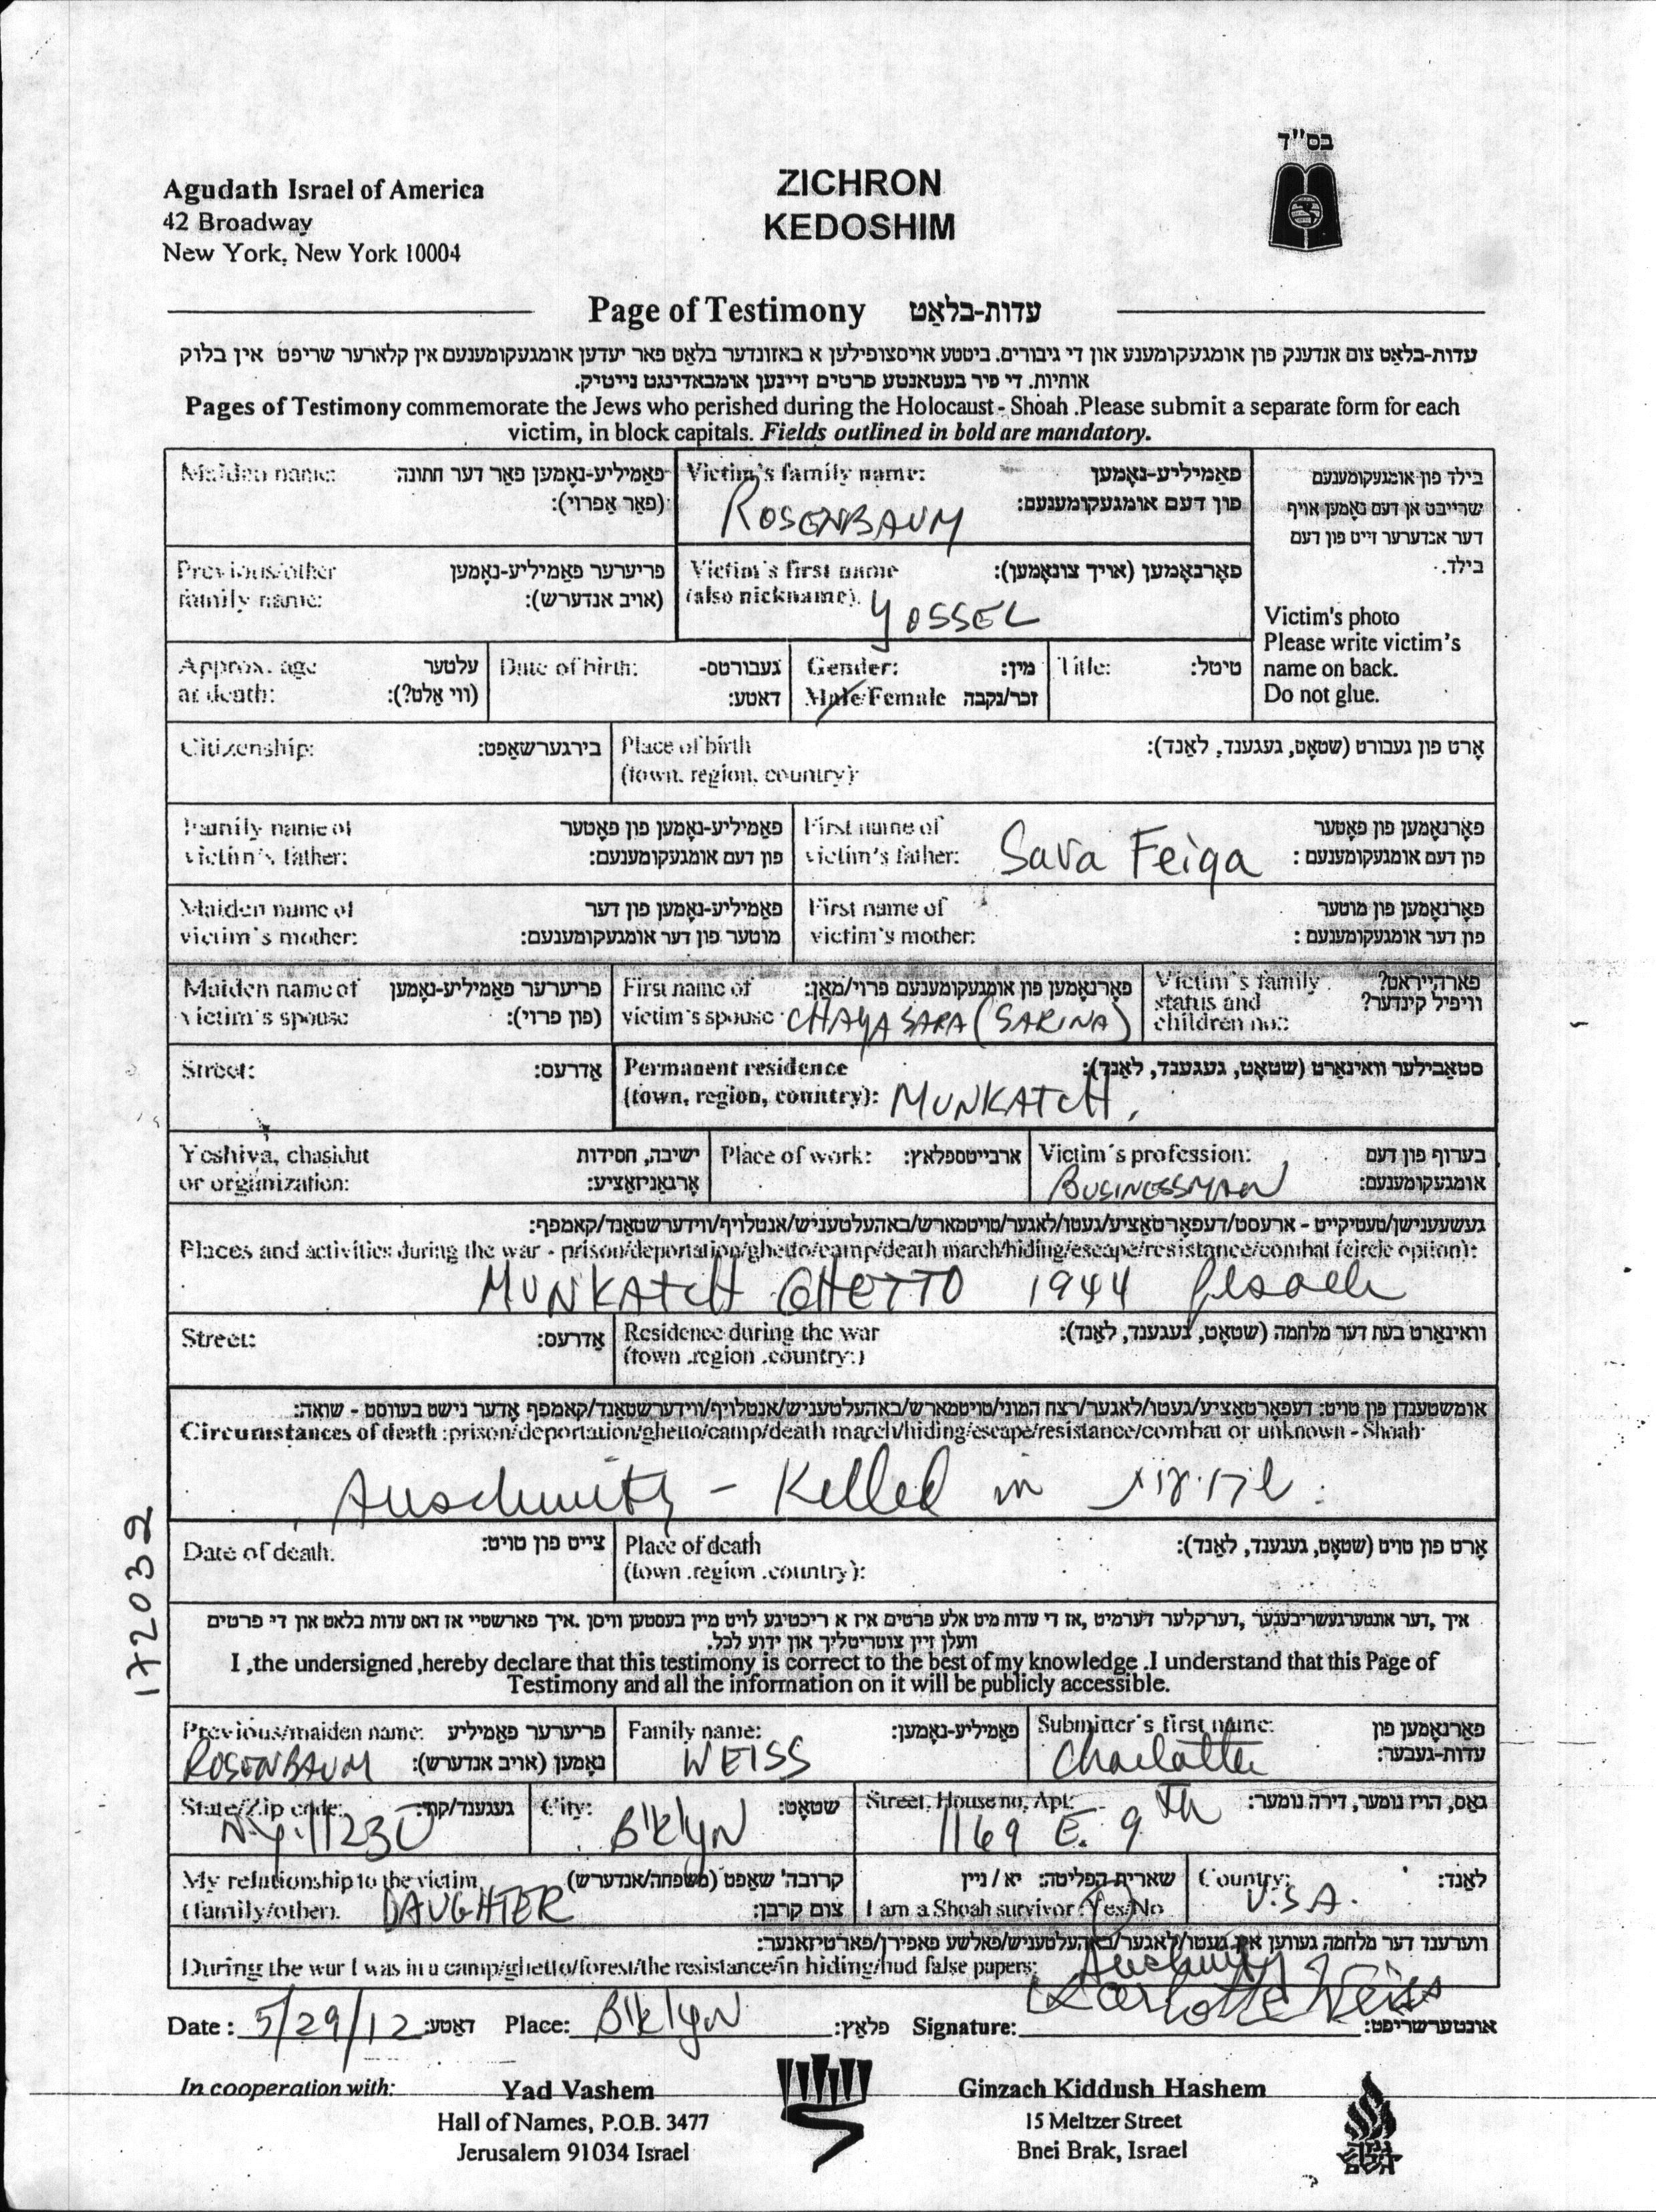 בס"ד
Agudath Israel of America
42 Broadway
New York, New York 10004
ZICHRON
KEDOSHIM
Page of Testimony עדות-בלאַט
עדות-בלאַט צום אנדענק פון אומגעקומענע און די גיבורים. ביטטע אויסצופילען א באזונדער בלאַט פאר יעדען אומגעקומענעם אין קלארער שריפט אין בלוק
אותיות. די פיר בעטאנטע פרטים זיינען אומבאדינגט נייטיק.
Pages of Testimony commemorate the Jews who perished during the Holocaust - Shoah .Please submit a separate form for each
victim, in block capitals. Fields outlined in bold are mandatory.
Maiden name: פאַמיליע-נאָמען פאַר דער חתונה
(פאַר אַפרוי):
Victim's family name: פאַמיליע-נאָמען
פון דעם אומגעקומענעם:
ROSENBAUM
בילד פון אומגעקומענעם
שרייבט אן דעם נאָמען אויף
דער אנדערער זייט פון דעם
בילד.
Victim's photo
Please write victim's
name on back.
Do not glue.
Previous/other פריערער פאַמיליע-נאָמען
family name: (אויב אנדערש):
Victim's first name פאָרנאָמען (אויך צונאָמען):
(also nickname).
YOSSEL
Approx. age עלטער
at death: (ווי אַלט?):
Date of birth: געבורטס-
דאַטע:
Gender: מין:
Male/Female זכר/נקבה
Title: טיטל:
Citizenship: בירגערשאַפט:
Place of birth אָרט פון געבורט (שטאָט, געגענד, לאַנד):
(town. region. country):
Family name of פאַמיליע-נאָמען פון פאָטער
victim's father: פון דעם אומגעקומענעם:
First name of פאָרנאָמען פון פאָטער
victim's father: Sava Feiga פון דעם אומגעקומענעם :
Maiden name of פאַמיליע-נאָמען פון דער
victim's mother: מוטער פון דער אומגעקומענעם:
First name of פאָרנאָמען פון מוטער
victim's mother: פון דער אומגעקומענעם :
Maiden name of פריערער פאַמיליע-נאָמען
victim's spouse (פון פרוי):
First name of פאָרנאָמען פון אומגעקומענעם פרוי/מאַן:
victim's spouse CHAYA SARA (SARINA)
Victim's family פארהייראט?
status and וויפיל קינדער?
children no.:
Street: אַדרעס:
Permanent residence סטאַבילער וואוינאָרט (שטאָט, געגענד, לאַנד):
(town, region, country): MUNKATCH,
Yeshiva, chasidut ישיבה, חסידות
or organization: אָרגאַניזאַציע:
Place of work: ארבייטספּלאַץ:
Victim's profession: בערוף פון דעם
אומגעקומענעם:
BUSINESSMAN
געשעענישן/טעטיקייט - ארעסט/דעפּאָרטאַציע/געטו/לאַגער/טויטמארש/באהעלטעניש/אנטלויף/ווידערשטאַנד/קאמפף:
Places and activities during the war - prison/deportation/ghetto/camp/death march/hiding/escape/resistance/combat (circle option):
MUNKATCH GHETTO 1944 Pesach
Street: אַדרעס:
Residence during the war וואוינאָרט בעת דער מלחמה (שטאָט, געגענד, לאַנד):
(town .region .country:)
אומשטענדן פון טויט: דעפּאָרטאַציע/געטו/לאַגער/רצח המוני/טויטמארש/באהעלטעניש/אנטלויף/ווידערשטאַנד/קאמפף אָדער נישט בעוווסט - שואה:
Circumstances of death :prison/deportation/ghetto/camp/death march/hiding/escape/resistance/combat or unknown - Shoah
Auschwitz - Killed in
Date of death. צייט פון טויט:
Place of death אָרט פון טויט (שטאָט, געגענד, לאַנד):
(town .region .country):
172032
איך ,דער אונטערגעשריבענער ,דערקלער דערמיט ,אז די עדות מיט אלע פרטים איז א ריכטיגע לויט מיין בעסטען וויסן .איך פארשטיי אז דאס עדות בלאט און די פרטים
וועלן זיין צוטריטליך און ידוע לכל.
I ,the undersigned ,hereby declare that this testimony is correct to the best of my knowledge .I understand that this Page of
Testimony and all the information on it will be publicly accessible.
Previous/maiden name: פריערער פאַמיליע
ROSENBAUM נאָמען (אויב אנדערש):
Family name: פאַמיליע-נאָמען:
WEISS
Submitter's first name: פאָרנאָמען פון
Charlotte עדות-געבער:
State/Zip code: געגענד/קוד:
N.Y. 11230
City: שטאָט:
Bklyn
Street, House no, Apt: גאַס, הויז נומער, דירה נומער:
1169 E. 9TH
My relationship to the victim קרובה' שאַפט (משפּחה/אנדערש)
(family/other). DAUGHTER צום קרבן:
שארית-הפליטה: יא / ניין
I am a Shoah survivor :Yes/No
Country: לאַנד:
U.S.A.
ווערענד דער מלחמה געווען אין געטו/לאַגער/באַהעלטעניש/פאלשע פּאפּירן/פּארטיזאנער:
During the war I was in a camp/ghetto/forest/the resistance/in hiding/had false papers: Auschwitz
Date : 5/29/12 דאַטע: Place: Bklyn פּלאַץ: Signature: Charlotte Weiss אונטערשריפט:
In cooperation with:
Yad Vashem
Hall of Names, P.O.B. 3477
Jerusalem 91034 Israel
Ginzach Kiddush Hashem
15 Meltzer Street
Bnei Brak, Israel